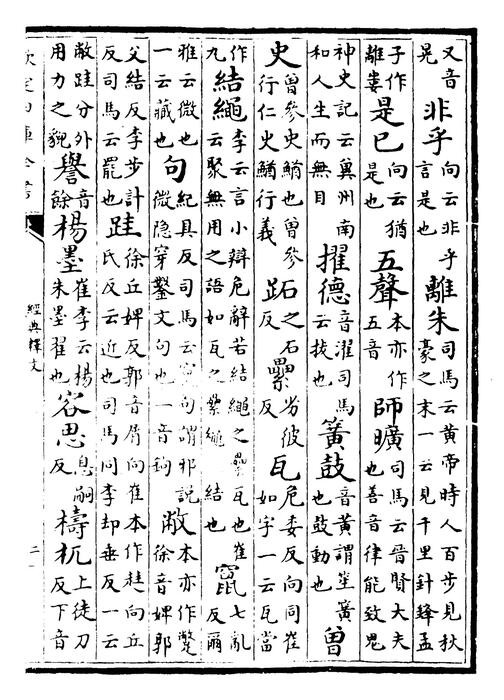 又音晃非乎向云非乎言是也離朱司馬云黄帝時人百步見秋豪之末一云見千里針鋒孟
子作離婁是已向云猶是也五聲本亦作五音師曠司馬云晉賢大夫也善音律能致鬼
神史記云冀州南和人生而無目擢德音濯司馬云拔也簧鼓音黄謂笙簧也鼓動也曾
史曾參史鰌也曾參行仁史鰌行義跖之石反纍劣彼反瓦危委反向同崔如字一云瓦當
作九結繩李云言小辯危辭若結繩之纍瓦也崔云聚無用之語如瓦之纍繩結也竄七亂反爾
雅云微也一云藏也句紀具反司馬云竄句謂邪說微隐穿鑿文句也一音鉤敝本亦作蹩徐音婢郭
父結反李步計反司馬云罷也跬徐丘婢反郭音屑向崔本作跬向丘氏反云近也司馬同李却垂反一云
敝跬分外用力之貌譽音餘楊墨崔李云楊朱墨翟也容思息嗣反檮杌上徒刀反下音
欽定四庫全書
經典釋文